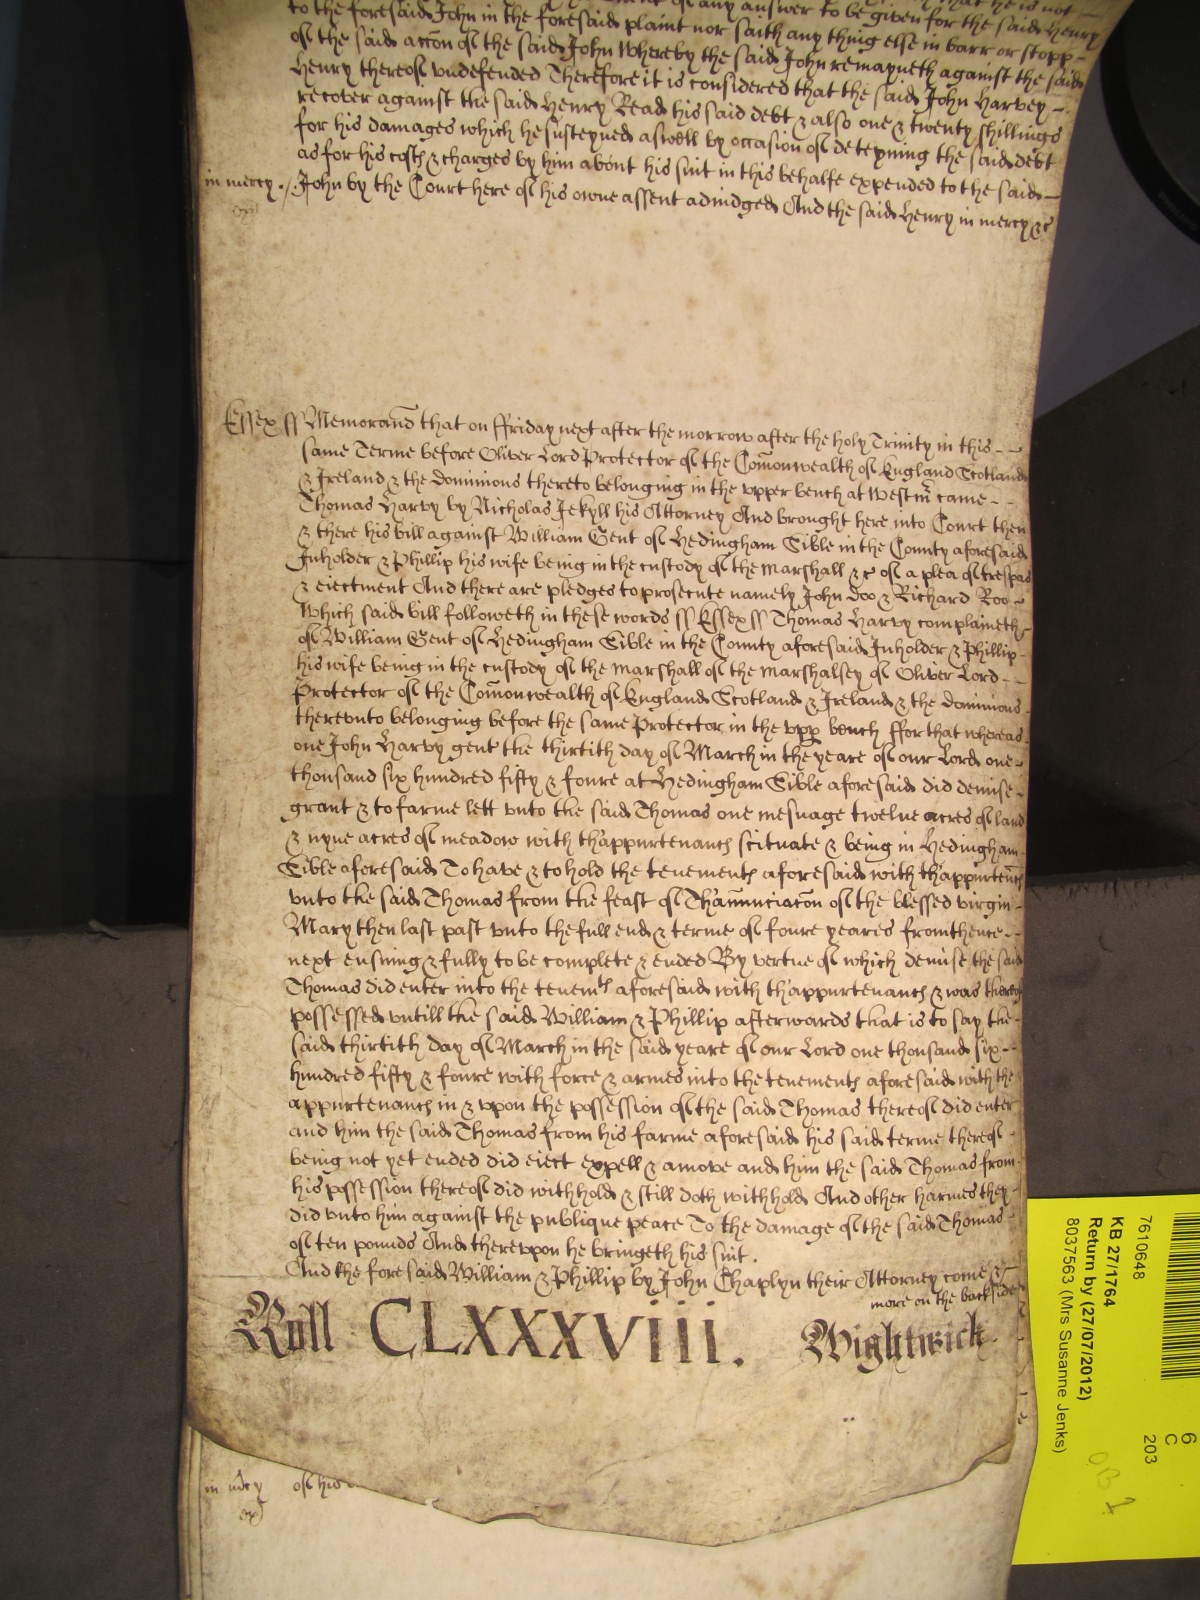 to the foresaid John in the foresaid plaint nor saith any thing else in barr or stopp
of the said accōn of the said John Whereby the said John remayneth against the said
Henry thereof vndefended Therefore it is considered that the said John Harvey
recover against the said Henry Read his said debt & also one & twenty shillings
for his damages which he susteyned aswell by occasion of deteyning the said debt
as for his costs & charges by him about his suit in this behalfe expended to the said
in mercy John by the Court here of his owne assent adiudged And the said Henry in mercy &c
Essex ss Memorand that on ffriday next after the morrow after the holy Trinity in this
same Terme before Oliver Lord Protector of the Com̄onwealth of England Scotland
& Ireland & the dominions thereto belonging in the vpper bench at Westm̄ came
Thomas Harvy by Nicholas Jekyll his Attorney And brought here into Court then
& there his bill against William Gent of Hedingham Sible in the County aforesaid
Inholder & Phillip his wife being in the custody of the marshall &c of a plea of trespas
& eiectment And there are pledges to prosecute namely John Doo & Richard Roo
Which said bill followeth in these words ss Essex ss Thomas Harvy complaineth
of William Gent of Hedingham Sible in the County aforesaid Inholder & Phillip
his wife being in the custody of the marshall of the marshalsey of Oliver Lord
Protector of the Com̄onwealth of England Scotland & Ireland & the dominions
therevnto belonging before the same Protector in the vpp bench ffor that whereas
one John Harvy gent the thirtith day of March in the yeare of our Lord one
thousand six hundred fifty & foure at Hedingham Sible aforesaid did demise
grant & to farme lett vnto the said Thomas one mesuage twelue acres of land
& nyne acres of meadow with th'appurtenancs scituate & being in Hedingham
Sible aforesaid To have & to hold the tenements aforesaid with th'appurtenncs
vnto the said Thomas from the feast of Th'annunciacōn of the blessed virgin
Mary then last past vnto the full end & terme of foure yeares from thence
next ensuing & fully to be complete & ended By vertue of which demise the said
Thomas did enter into the tenemts aforesaid with th'appurtenancs & was thereof
possessed vntill the said William & Phillip afterwards that is to say the
said thirtith day of March in the said yeare of our Lord one thousand six
hundred fifty & foure with force & armes into the tenements aforesaid with the
appurtenancs in & vpon the possession of the said Thomas thereof did enter
and him the said Thomas from his farme aforesaid his said terme thereof
being not yet ended did eiect expell & amove and him the said Thomas from
his possession thereof did withhold & still doth withhold And other harmes they
did vnto him against the publique peace To the damage of the said Thomas
of ten pounds And therevpon he bringeth his suit .
And the foresaid William & Phillip by John Chaplyn their Attorney come &
more on the backside
Roll CLXXXviii. Wightwick
of his
7610648
KB 27/1764
Return by (27/07/2012)
8037563 (Mrs Susanne Jenks)
6
C
203